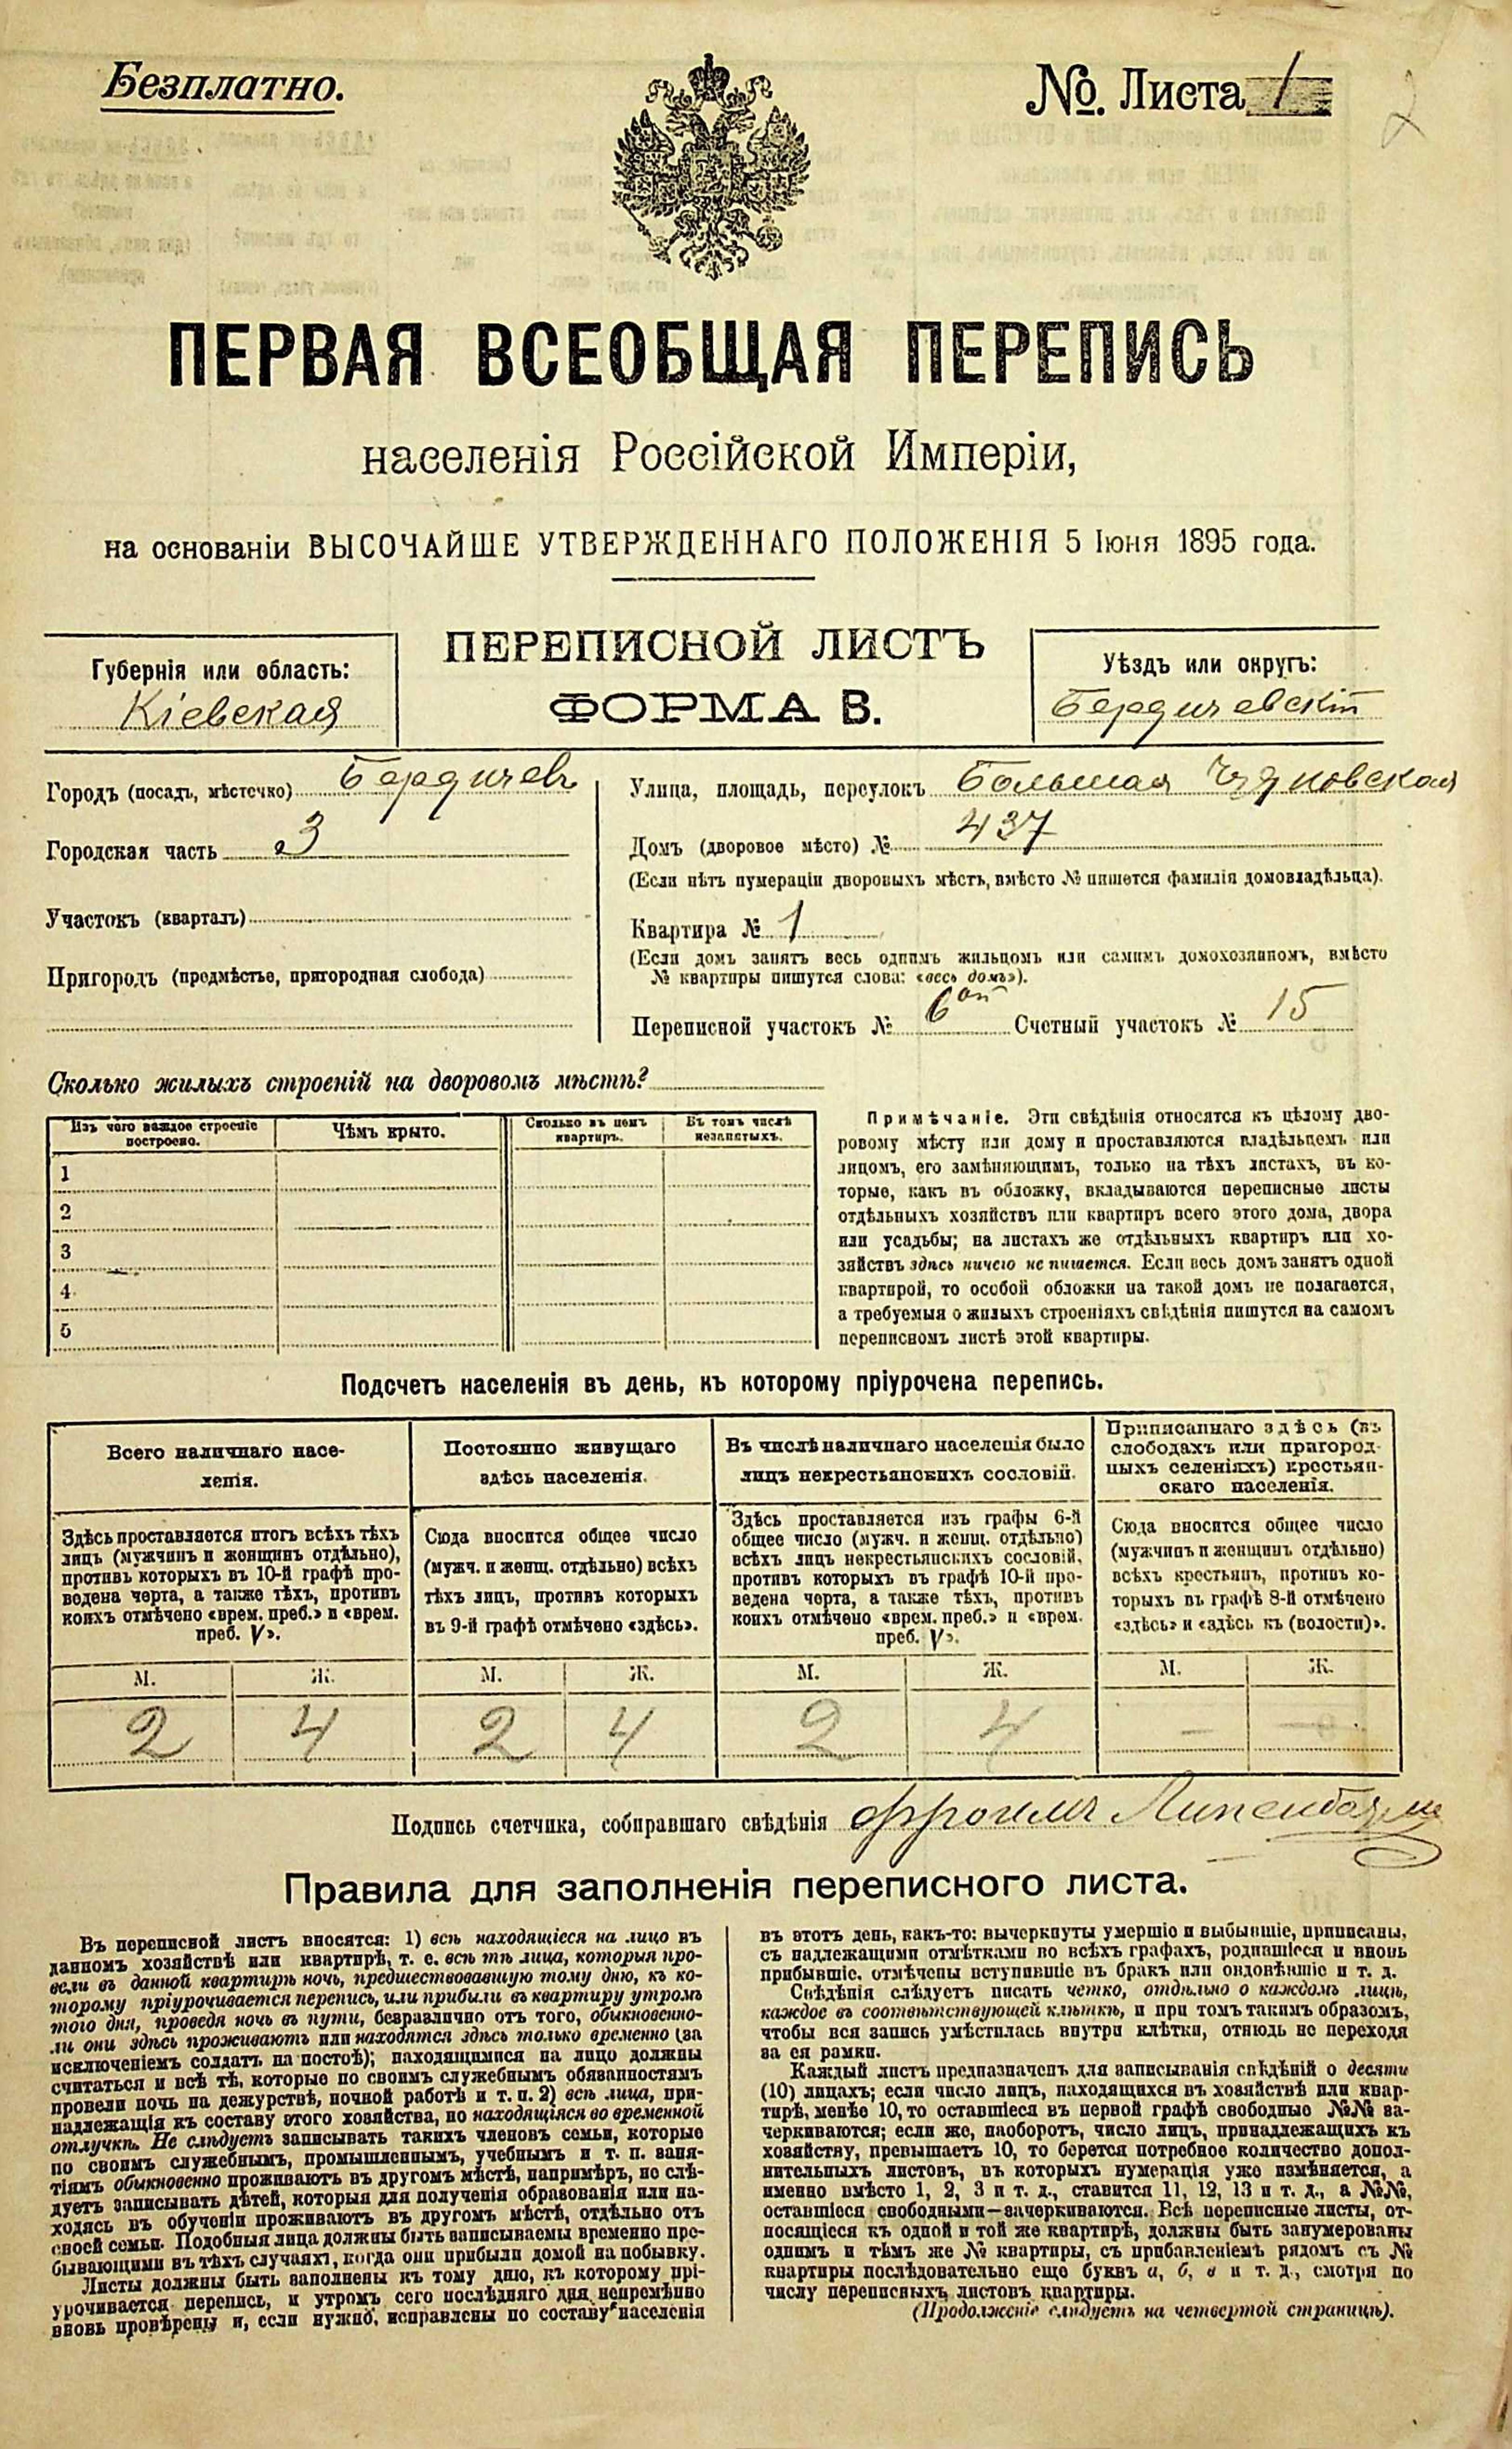 Безплатно.
№. Листа 1
ПЕРВАЯ ВСЕОБЩАЯ ПЕРЕПИСЬ
населенія Россійской Имперіи,
на основаніи ВЫСОЧАЙШЕ УТВЕРЖДЕННАГО ПОЛОЖЕНІЯ 5 Іюня 1895 года.
ПЕРЕПИСНОЙ ЛИСТЪ
ФОРМА В.
Губернія или область:
Кіевская
Уѣздъ или округъ:
Бердичевскій
Городъ (посадъ, мѣстечко) Бердичевъ
Городская часть 3
Участокъ (кварталъ)
Пригородъ (предмѣстье, пригородная слобода)
Улица, площадь, переулокъ Большая
Домъ (дворовое мѣсто) № 437
(Если нѣтъ нумераціи дворовыхъ мѣстъ, вмѣсто № пишется фамилія домовладѣльца).
Квартира № 1
(Если домъ занятъ весь однимъ жильцомъ или самимъ домохозяиномъ, вмѣсто
№ квартиры пишутся слова: «весь домъ»).
Переписной участокъ № 6ой Счетный участокъ № 15
Сколько жилыхъ строеній на дворовомъ мѣстѣ?
Изъ чего каждое строеніе
построено.
Чѣмъ крыто.
Сколько въ немъ
квартиръ.
Въ томъ числѣ
незанятыхъ.
1
2
3
4
5
Примѣчаніе. Эти свѣдѣнія относятся къ цѣлому дво-
ровому мѣсту или дому и проставляются владѣльцемъ или
лицомъ, его замѣняющимъ, только на тѣхъ листахъ, въ ко-
торые, какъ въ обложку, вкладываются переписные листы
отдѣльныхъ хозяйствъ или квартиръ всего этого дома, двора
или усадьбы; на листахъ же отдѣльныхъ квартиръ или хо-
зяйствъ здѣсь ничего не пишется. Если весь домъ занятъ одной
квартирой, то особой обложки на такой домъ не полагается,
а требуемыя о жилыхъ строеніяхъ свѣдѣнія пишутся на самомъ
переписномъ листѣ этой квартиры.
Подсчетъ населенія въ день, къ которому пріурочена перепись.
Всего наличнаго насе-
ленія.
Здѣсь проставляется итогъ всѣхъ тѣхъ
лицъ (мужчинъ и женщинъ отдѣльно),
противъ которыхъ въ 10-й графѣ про-
ведена черта, а также тѣхъ, противъ
коихъ отмѣчено «врем. преб.» и «врем.
преб. V».
М. Ж.
2 4
Постоянно живущаго
здѣсь населенія.
Сюда вносится общее число
(мужч. и женщ. отдѣльно) всѣхъ
тѣхъ лицъ, противъ которыхъ
въ 9-й графѣ отмѣчено «здѣсь».
М. Ж.
2 4
Въ числѣ наличнаго населенія было
лицъ некрестьянскихъ сословій.
Здѣсь проставляется изъ графы 6-й
общее число (мужч. и женщ. отдѣльно)
всѣхъ лицъ некрестьянскихъ сословій,
противъ которыхъ въ графѣ 10-й про-
ведена черта, а также тѣхъ, противъ
коихъ отмѣчено «врем. преб.» и «врем.
преб. V».
М. Ж.
2 4
Приписаннаго здѣсь (въ
слободахъ или пригород-
ныхъ селеніяхъ) крестьян-
скаго населенія.
Сюда вносится общее число
(мужчинъ и женщинъ отдѣльно)
всѣхъ крестьянъ, противъ ко-
торыхъ въ графѣ 8-й отмѣчено
«здѣсь» и «здѣсь къ (волости)».
М. Ж.
– –
Подпись счетчика, собиравшаго свѣдѣнія
Правила для заполненія переписного листа.
Въ переписной листъ вносятся: 1) всѣ находящіеся на лицо въ
данномъ хозяйствѣ или квартирѣ, т. е. всѣ тѣ лица, которыя про-
вели въ данной квартирѣ ночь, предшествовавшую тому дню, къ ко-
торому пріурочивается перепись, или прибыли въ квартиру утромъ
того дня, проведя ночь въ пути, безразлично отъ того, обыкновенно-
ли они здѣсь проживаютъ или находятся здѣсь только временно (за
исключеніемъ солдатъ на постоѣ); находящимися на лицо должны
считаться и всѣ тѣ, которые по своимъ служебнымъ обязанностямъ
провели ночь на дежурствѣ, ночной работѣ и т. п. 2) всѣ лица, при-
надлежащія къ составу этого хозяйства, но находящіяся во временной
отлучкѣ. Не слѣдуетъ записывать такихъ членовъ семьи, которые
по своимъ служебнымъ, промышленнымъ, учебнымъ и т. п. заня-
тіямъ обыкновенно проживаютъ въ другомъ мѣстѣ, напримѣръ, не слѣ-
дуетъ записывать дѣтей, которыя для полученія образованія или на-
ходясь въ обученіи проживаютъ въ другомъ мѣстѣ, отдѣльно отъ
своей семьи. Подобныя лица должны быть записываемы временно пре-
бывающими въ тѣхъ случаяхъ, когда они прибыли домой на побывку.
Листы должны быть заполнены къ тому дню, къ которому прі-
урочивается перепись, и утромъ сего послѣдняго дня непремѣнно
вновь провѣрены и, если нужно, исправлены по составу населенія
въ этотъ день, какъ-то: вычеркнуты умершіе и выбывшіе, приписаны,
съ надлежащими отмѣтками во всѣхъ графахъ, родившіеся и вновь
прибывшіе, отмѣчены вступившіе въ бракъ или овдовѣвшіе и т. д.
Свѣдѣнія слѣдуетъ писать четко, отдѣльно о каждомъ лицѣ,
каждое въ соотвѣтствующей клѣткѣ, и при томъ такимъ образомъ,
чтобы вся запись умѣстилась внутри клѣтки, отнюдь не переходя
за ея рамки.
Каждый листъ предназначенъ для записыванія свѣдѣній о десяти
(10) лицахъ; если число лицъ, находящихся въ хозяйствѣ или квар-
тирѣ, менѣе 10, то оставшіеся въ первой графѣ свободные №№ за-
черкиваются; если же, наоборотъ, число лицъ, принадлежащихъ къ
хозяйству, превышаетъ 10, то берется потребное количество допол-
нительныхъ листовъ, въ которыхъ нумерація уже измѣняется, а
именно вмѣсто 1, 2, 3 и т. д., ставится 11, 12, 13 и т. д., а №№,
оставшіеся свободными—зачеркиваются. Всѣ переписные листы, от-
носящіеся къ одной и той же квартирѣ, должны быть занумерованы
однимъ и тѣмъ же № квартиры, съ прибавленіемъ рядомъ съ №
квартиры послѣдовательно еще буквъ а, б, в и т. д., смотря по
числу переписныхъ листовъ квартиры.
(Продолженіе слѣдуетъ на четвертой страницѣ).